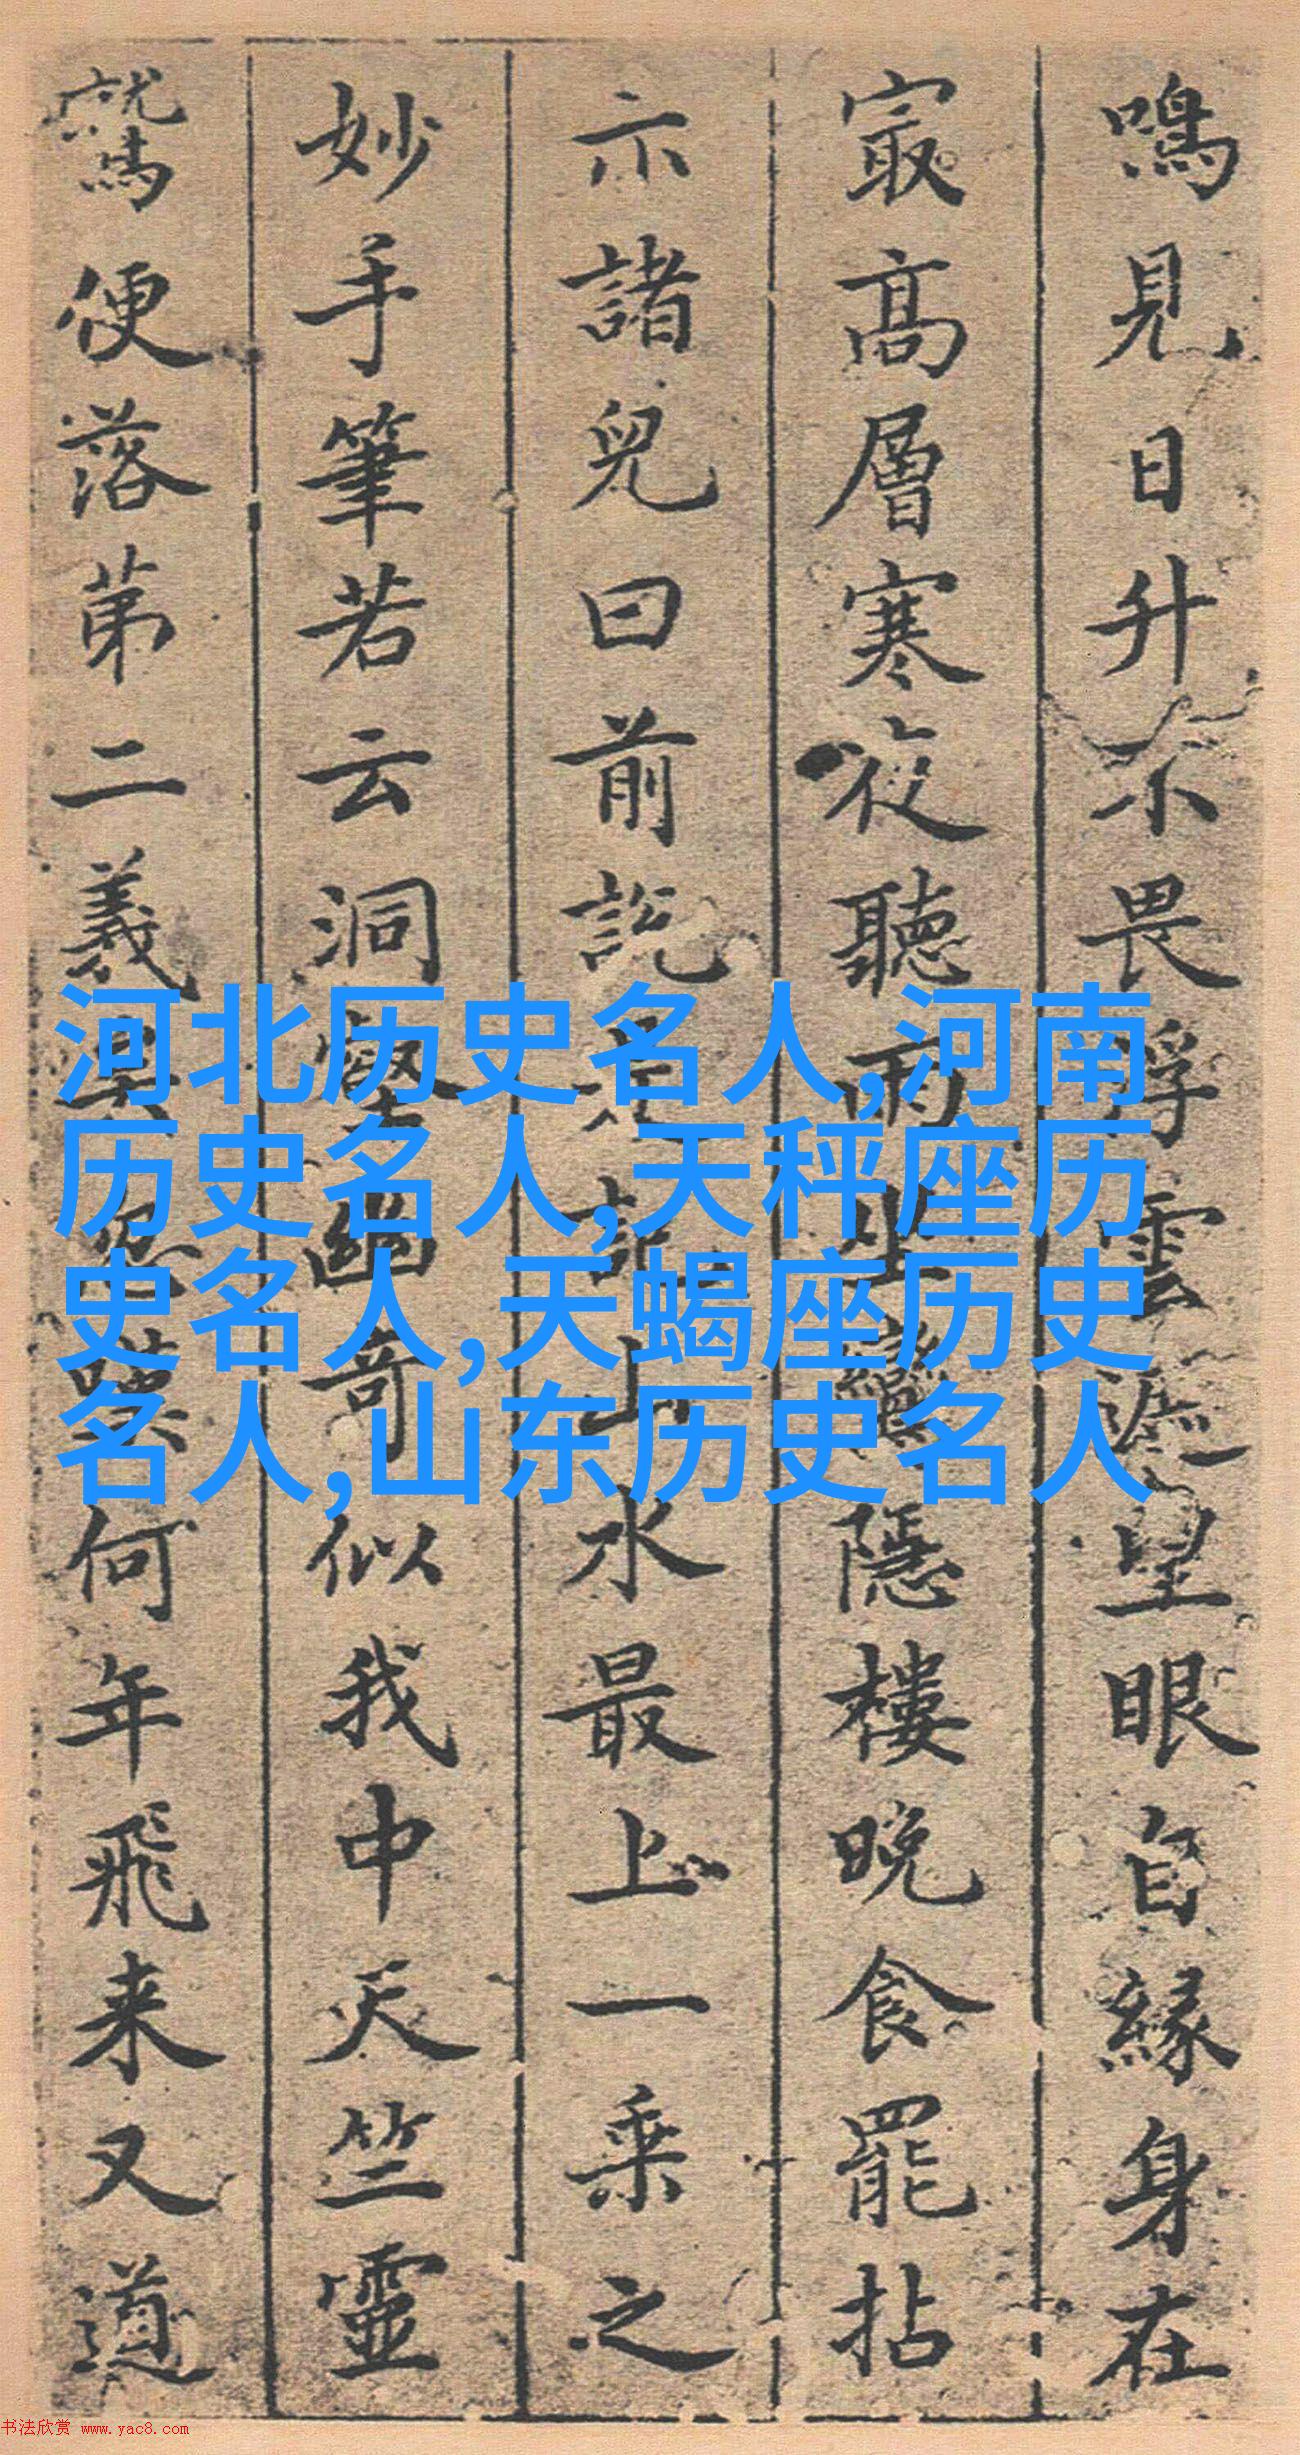 鳴見日升不畏浮雲遮望眼自緣身在
㝡高層寒夜聽雨坐隱樓晚食罷拈
示諸兒曰前説是山水最上一乘之
妙手筆若云洞壑幽奇似我中天竺靈
鷲便落第二義矣何年飛来又道
河北历史名人,河南
历史名人,天秤座历
史名人,天蝎座历史
名人,山东历史名人
书法欣赏 www.yac8.com